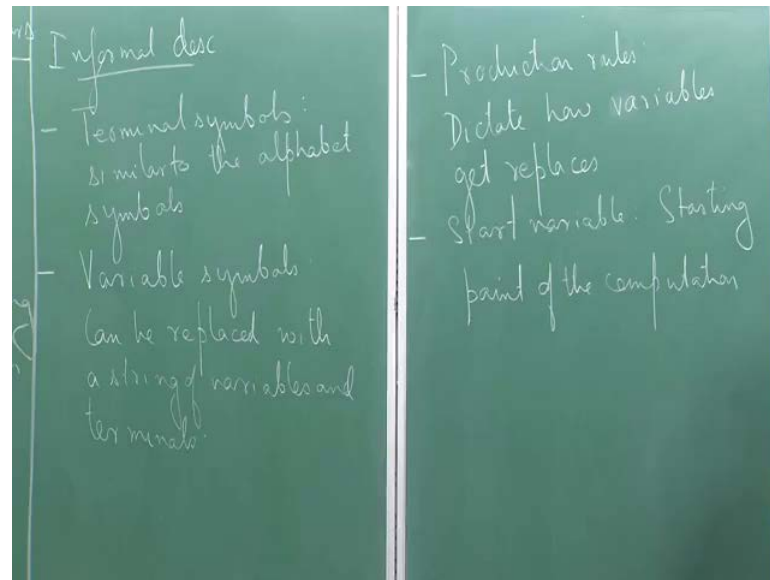 Informal desc
- Terminal symbols:
similar to the alphabet
symbols
- Variable symbols
Can be replaced with
a string of variables and
terminals.
- Production rules:
Dictate how variables
get replaces
- Start variable. Starting
point of the computation